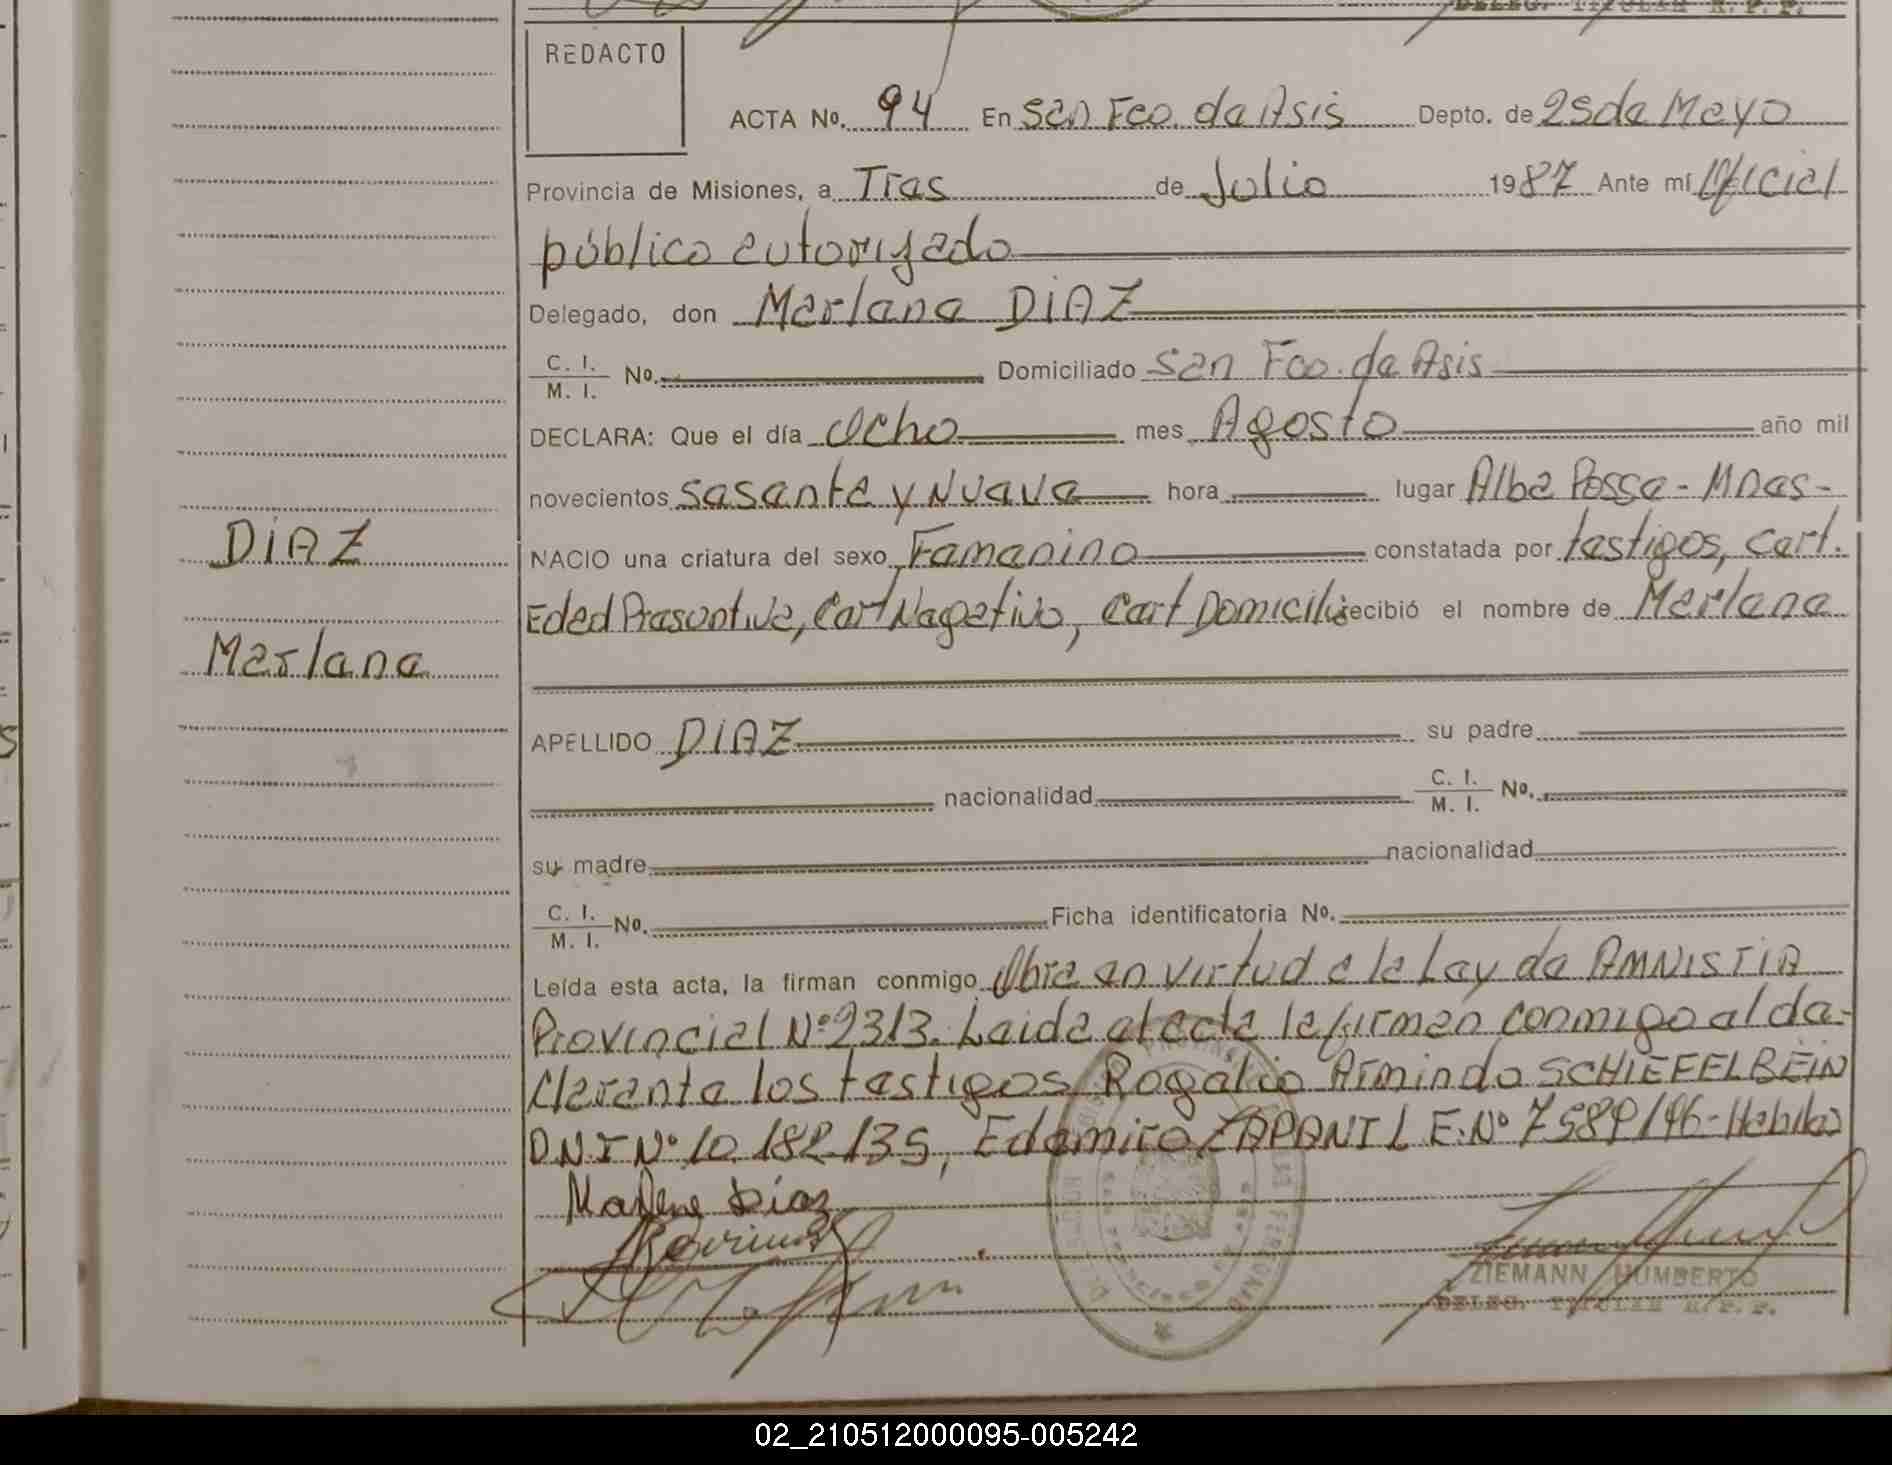 DELEG. TITULAR R. P. P.
REDACTO
ACTA No. 94 En San Fco. de Asis Depto. de 25 de Mayo
Provincia de Misiones, a Tres de Julio 1987 Ante mí Oficial
público autorizado
Delegado, don Marlene DIAZ
C. I. / M. I. No. Domiciliado San Fco. de Asis
DECLARA: Que el día Ocho mes Agosto año mil
novecientos sesenta y Nueve hora lugar Alba Posse - Mnes -
NACIO una criatura del sexo Femenino constatada por testigos, Cert.
Edad Presuntiva, Cert Negativo, Cert Domicilio recibió el nombre de Marlene
DIAZ
Marlene
APELLIDO DIAZ su padre
nacionalidad C. I. / M. I. No.
su madre nacionalidad
C. I. / M. I. No. Ficha identificatoria No.
Leída esta acta, la firman conmigo Obra en virtud a la Ley de AMNISTIA
Provincial Nº 2313. Leida el acta la firman conmigo el de-
clarante los testigos Rogelio Armindo SCHIEFELBEIN
D.N.I Nº 10.182.135, Edemiro ZAPANI L.E. Nº 7589146 - Habiles
Marlene Diaz
ZIEMANN HUMBERTO
DELEG. TITULAR R. P. P.
02_210512000095-005242